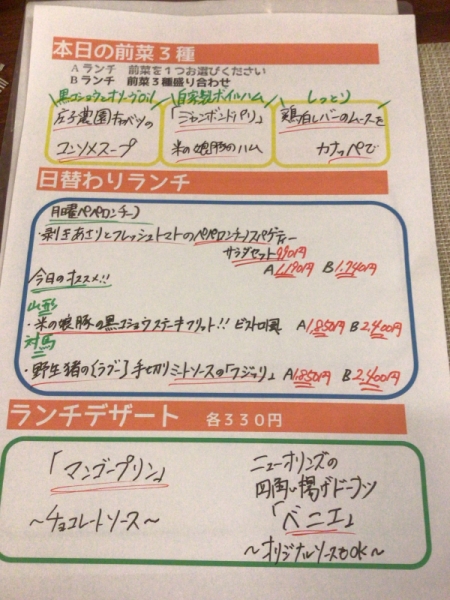 本日の前菜３種
Ａランチ 前菜を１つお選びください
Ｂランチ 前菜３種盛り合わせ
黒コショウとオリーブOil 自家製ボイルハム しっとり
庄子農園キャベツの 「ジャンボンドパリ」 鶏白レバーのムースを
コンソメスープ 米の娘豚のハム カナッペで
日替わりランチ
月曜ペペロンチーノ
・剥きあさりとフレッシュトマトのペペロンチーノスパゲティー
サラダセット990円
A1,190円 B1,740円
今日のオススメ!!
山形
・米の娘豚の黒コショウステーキフリット!! ビストロ風 A1,850円 B2,400円
対馬
・野生猪の{ラグー}手切りミートソースの「フジッリ」 A1,850円 B2,400円
ランチデザート 各３３０円
「マンゴープリン」
～チョコレートソース～
ニューオリンズの
四角い揚げドーナツ
「ベニエ」
～オリジナルソースもOK～